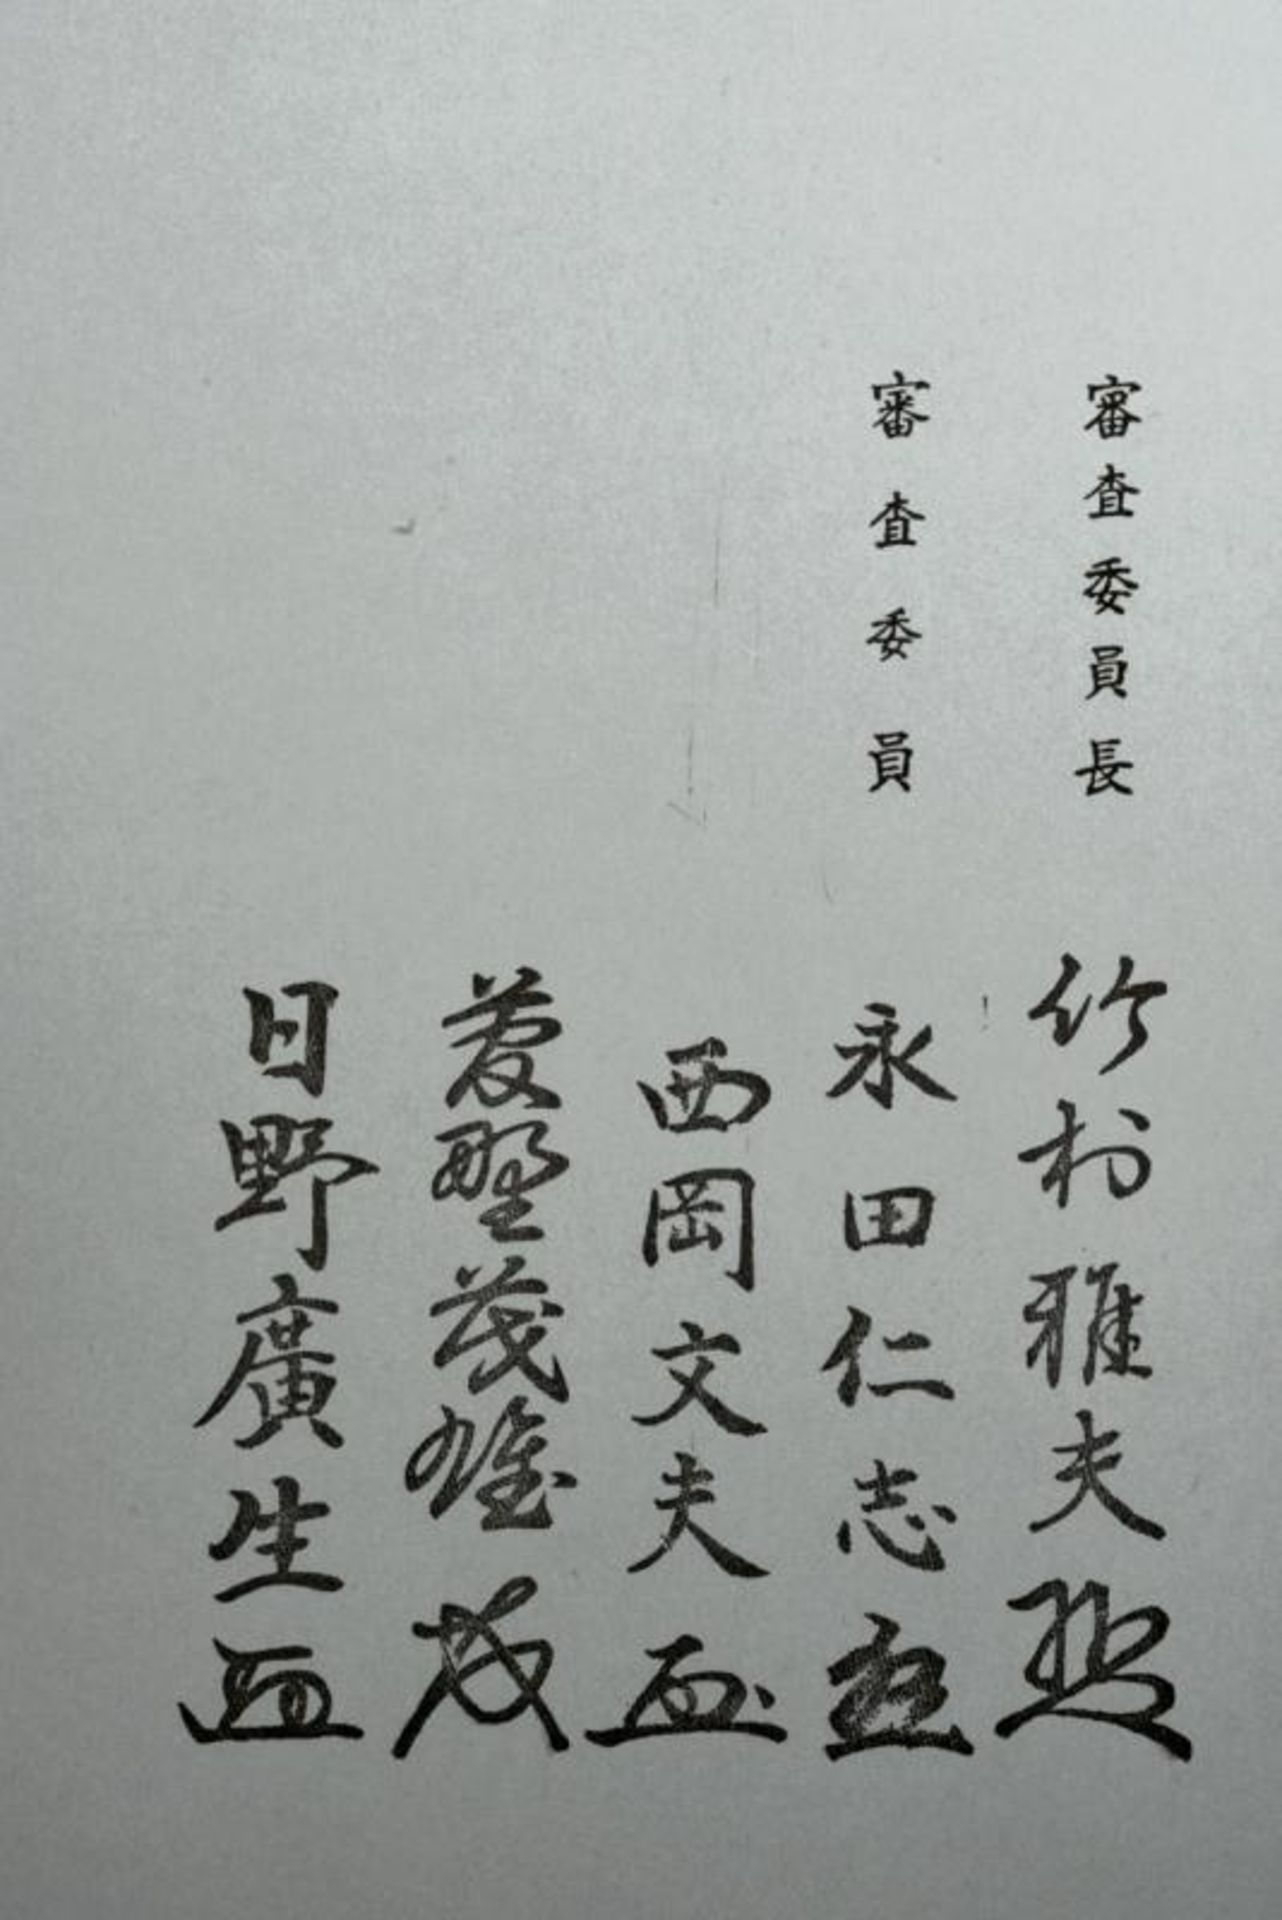 審査委員長
竹村雅夫
審査委員
永田仁志
西岡文夫
菱野茂雄
日野廣生